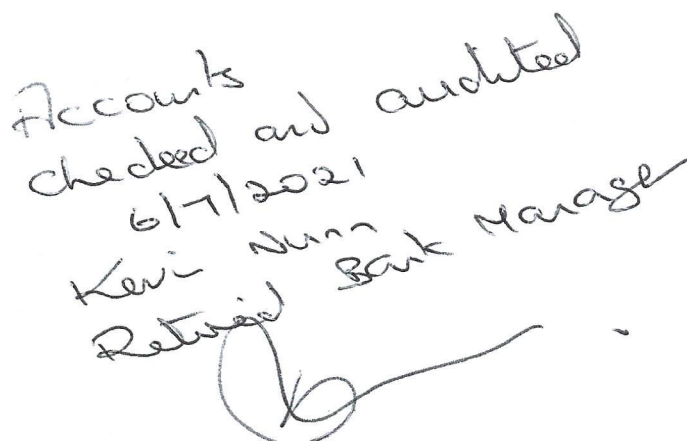 Accounts
checked and audited
6/7/2021
Kevin Nunn
Retired Bank Manager